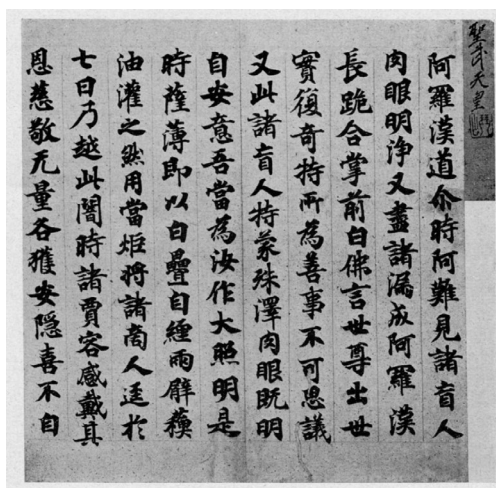 聖武天皇
阿羅漢道尒時阿難見諸盲人
肉眼明浄又盡諸漏成阿羅漢
長跪合掌前白佛言世尊出世
實復奇特所為善事不可思議
又此諸盲人特蒙殊澤肉眼既明
自安意吾當為汝作大照明是
時薩薄即以白疊自纏兩臂蘓
油灌之然用當炬将諸商人逕於
七日乃越此闇時諸賈客感戴其
恩慈敬无量各獲安隱喜不自